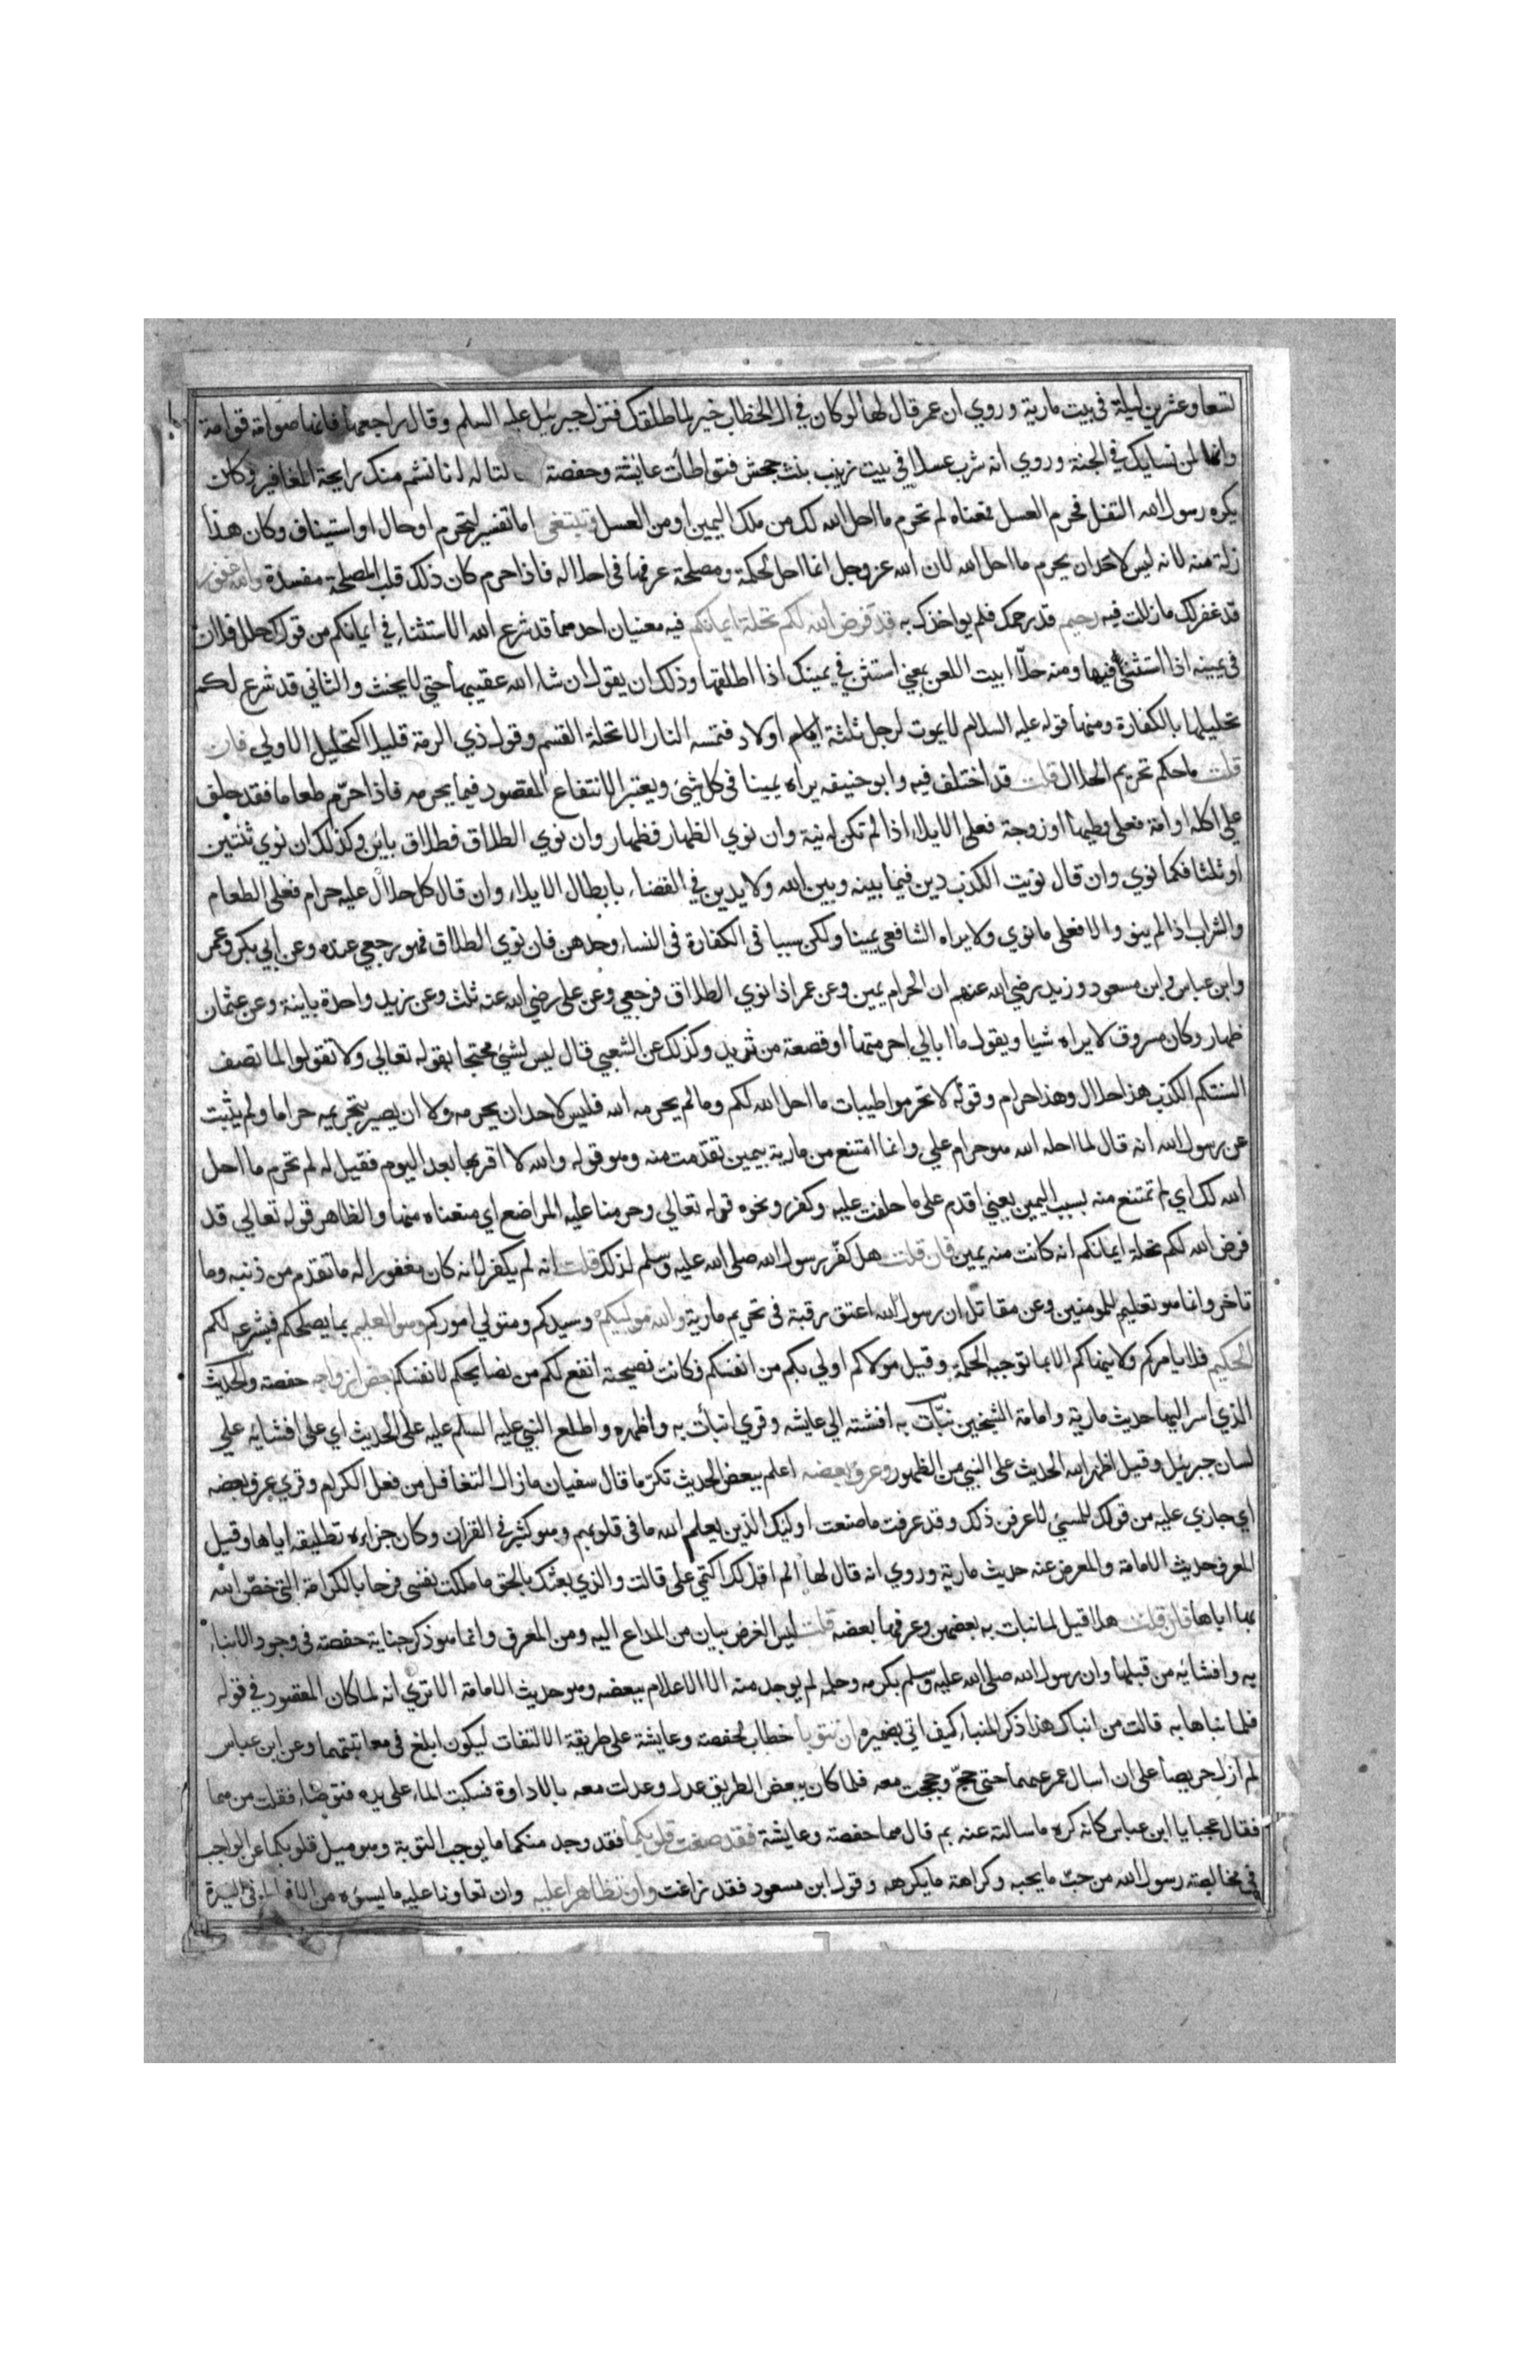 تسعا وعشرين ليلة في بيت مارية وروي ان عمر قال لها لوكان في ال الخطاب خير لما طلقك فنزل جبرئيل عليه السلم وقال راجعها فانها صوامة قوامة
وانها لمن نسايك في الجنة وروي انه شرب عسلا في بيت زينب بنت جحش فتواطأت عايشة وحفصة لتا له انا نشم منك رايحة المغافير وكان
يكره رسول الله التفل فحرم العسل فمعناه لم تحرم ما احل الله لك من ملك اليمين او من العسل وتبتغي اما تفسير لتحرم او حال او استيناف وكان هذا
زلة منه لانه ليس لاحد ان يحرم ما احل الله لان الله عز وجل انما احل لحكمة ومصلحة عرفها في احلاله فاذا حرم كان ذلك قلب المصلحة مفسدة والله غفور
قد غفر لك ما زللت فيه رحيم قد رحمك فلم يواخذك به قد فرض الله لكم تحلة ايمانكم فيه معنيان احدهما قد شرع الله الاستثناء في ايمانكم من قولك حلل فلان
في يمينه اذا استثني فيها ومنه حلّا ابيت اللعن بمعني استثن في يمينك اذا اطلقها وذلك ان يقول ان شاء الله عقيبها حتي لا يحنث والثاني قد شرع لكم
تحليلها بالكفارة ومنها قوله عليه السلام لا يموت لرجل ثلثة اولاد فتمسه النار الا تحلة القسم وقول ذي الرمة قليلا كتحليل الاولي فان
قلت ماحكم تحريم الحلال قلت قد اختلف فيه وابو حنيفه يراه يمينا في كل شئ ويعتبر الانتفاع المقصود فيما يحرمه فاذا حرّم طعاما فقد حلف
علي اكله او امة فعلي وطيها او زوجة فعلي الايلاء اذا لم تكن له نية وان نوي الظهار فظهار وان نوي الطلاق فطلاق باين وكذلك ان نوي ثنتين
او ثلثا فكما نوي وان قال نويت الكذب دين فيما بينه وبين الله ولا يدين في القضاء بابطال الايلاء وان قال كل حلال عليه حرام فعلي الطعام
والشراب اذا لم ينو والا فعلي ما نوي ولا يراه الشافعي يمينا ولكن سببا في الكفارة في النساء وحدهن فان نوي الطلاق فهو رجعي عنده وعن ابي بكر وعمر
وابن عباس وابن مسعود وزيد رضي الله عنهم ان الحرام يمين وعن عمر اذا نوي الطلاق فرجعي وعن علي رضي الله عنه ثلث وعن زيد واحدة باينة وعن عثمان
ظهار وكان مسروق لا يراه شيا ويقول ما ابالي احرمتها او قصعة من ثريد وكذلك عن الشعبي قال ليس بشئ محتجا بقوله تعالي ولا تقولوا لما تصف
السنتكم الكذب هذا حلال وهذا حرام وقوله لا تحرموا طيبات ما احل الله لكم وما لم يحرمه الله فليس لاحد ان يحرمه ولا ان يصير بتحريمه حراما ولم يثبت
عن رسول الله انه قال لما احله الله هو حرام علي وانما امتنع من مارية بيمين تقدمت منه وهو قوله والله لا اقربها بعد اليوم فقيل له لم تحرم ما احل
الله لك اي لم تمتنع منه بسبب اليمين يعني اقدم علي ما حلفت عليه وكفر ونحوه قوله تعالي وحرمنا عليه المراضع اي منعناه منها والظاهر قوله تعالي قد
فرض الله لكم تحلة ايمانكم انه كانت منه يمين فان قلت هل كفّر رسول الله صلي الله عليه وسلم لذلك قلت انه لم يكفر لانه كان مغفورا له ما تقدم من ذنبه وما
تاخر وانما هو تعليم للمومنين وعن مقاتل ان رسول الله اعتق رقبة في تحريم مارية والله موليكم وسيدكم ومتولي اموركم وهو العليم بما يصلحكم فيشرعه لكم
الحكيم فلا يامركم ولا ينهاكم الا بما توجبه الحكمة وقيل مولاكم اولي بكم من انفسكم فكانت نصيحته انفع لكم من نصايحكم لانفسكم بعض ازواجه حفصة والحديث
الذي اسر اليها حديث مارية وامامة الشيخين نبّات به افشته الي عايشه وقري انبأت به واظهره واطلع النبي عليه السلم عليه علي الحديث اي علي افشايه علي
لسان جبرئيل وقيل اظهر الله الحديث علي النبي من الظهور وعرف بعضه اعلم ببعض الحديث تكرّما قال سفيان ما زال التغافل من فعل الكرام وقري عرف بعضه
اي جازي عليه من قولك للمسئ لاعرفن ذلك وقد عرفت ما صنعت اوليك الذين يعلم الله ما في قلوبهم وهو كثير في القران وكان جزاءه تطليقه اياها وقيل
المعرف حديث الامامة والمعرض عنه حديث مارية وروي انه قال لها الم اقل لك اكتمي علي قالت والذي بعثك بالحق ما ملكت نفسي فرحا بالكرامة التي خصّ الله
بها اباها فان قلت هلا قيل لما نبات به بعضهن وعرفها بعضه قلت ليس الغرض بيان من المذاع اليه ومن المعرف وانما هو ذكر جناية حفصة في وجود الانباء
به وافشائه من قبلها وان رسول الله صلي الله عليه وسلم بكرمه وحلمه لم يوجد منه الا الاعلام ببعضه وهو حديث الامامة الا تري انه لما كان المقصود في قوله
فلما نباها به قالت من انباك هذا ذكر المنباء كيف اتي بضميره ان تتوبا خطاب لحفصة وعايشة علي طريقة الالتفات ليكون ابلغ في معاتبتهما وعن ابن عباس
لم ازل حريصا علي ان اسال عمر عنهما حتي حجّ وحججت معه فلما كان ببعض الطريق عدل وعدلت معه بالاداوة فسكبت الماء علي يده فتوضاء فقلت من هما
فقال عجبا يا ابن عباس كانه كره ما سالته عنه ثم قال هما حفصة وعايشة فقد صغت قلوبكما فقد وجد منكما ما يوجب التوبة وهو ميل قلوبكما عن الواجب
في مخالصة رسول الله من حبّ ما يحبه وكراهة ما يكرهه وقول ابن مسعود فقد زاغت وان تظاهرا عليه وان تعاونا عليه ما يسوءه من